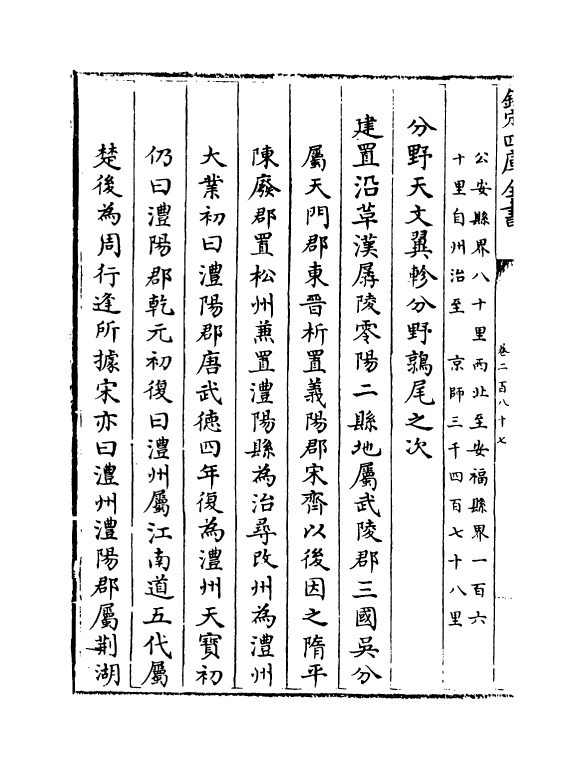 欽定四庫全書
卷二百八十七
公安縣界八十里西北至安福縣界一百六
十里自州治至 京師三千四百七十八里
分野天文翼軫分野鶉尾之次
建置沿革漢孱陵零陽二縣地屬武陵郡三國吳分
屬天門郡東晉析置義陽郡宋齊以後因之隋平
陳廢郡置松州兼置澧陽縣為治尋改州為澧州
大業初曰澧陽郡唐武徳四年復為澧州天寶初
仍曰澧陽郡乾元初復曰澧州屬江南道五代屬
楚後為周行逢所據宋亦曰澧州澧陽郡屬荆湖